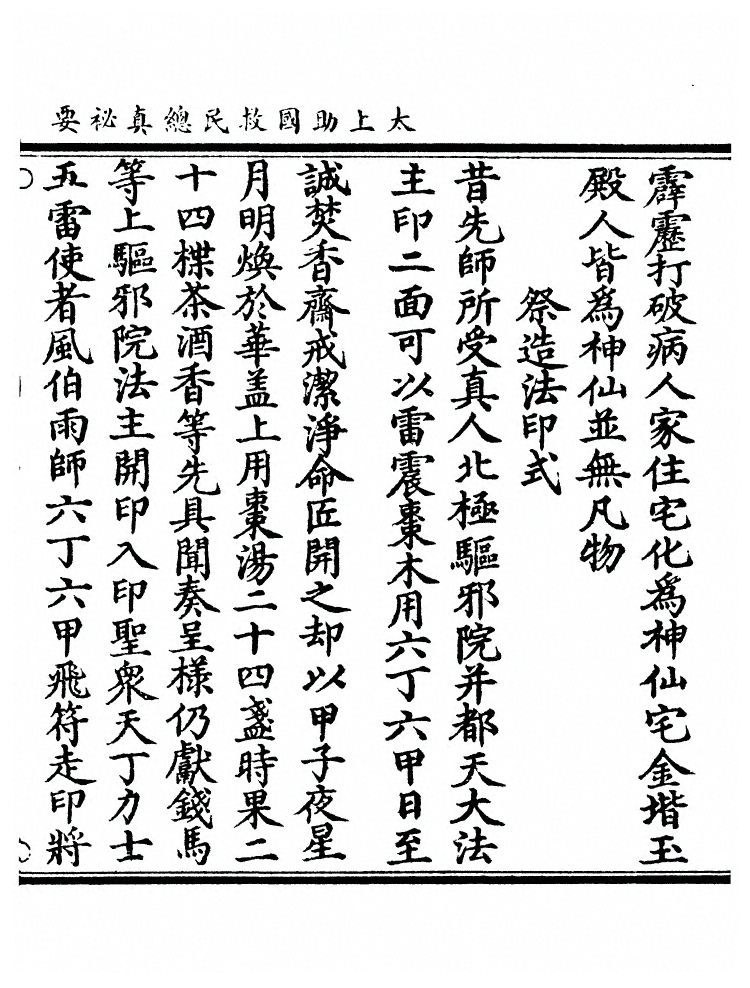 太上助國救民總真祕要
霹靂打破病人家住宅化為神仙宅金堦玉
殿人皆為神仙並無凡物
祭造法印式
昔先師所受真人北極驅邪院并都天大法
主印二面可以雷震棗木用六丁六甲日至
誠焚香齋戒潔淨命匠開之却以甲子夜星
月明煥於華盖上用棗湯二十四盞時果二
十四楪茶酒香等先具聞奏呈樣仍獻錢馬
等上驅邪院法主開印入印聖衆天丁力士
五雷使者風伯雨師六丁六甲飛符走印將